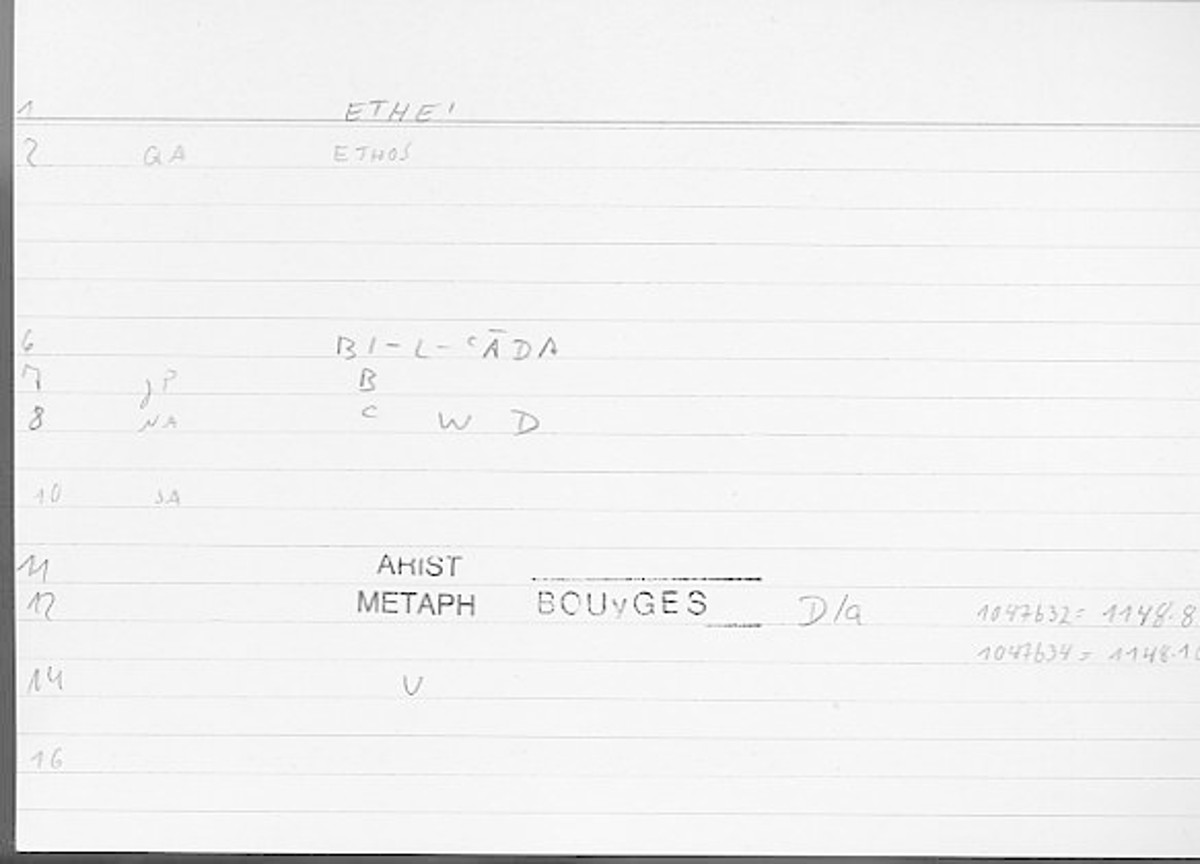 1 ETHE'
2 QA ETHOS
6 BI-L-ʿĀDA
7 JP B
8 NA C W D
10 SA
11 ARIST
12 METAPH BOUyGES D/a 1047b32= 1148.8
1047b34= 1148.10
14 V
16